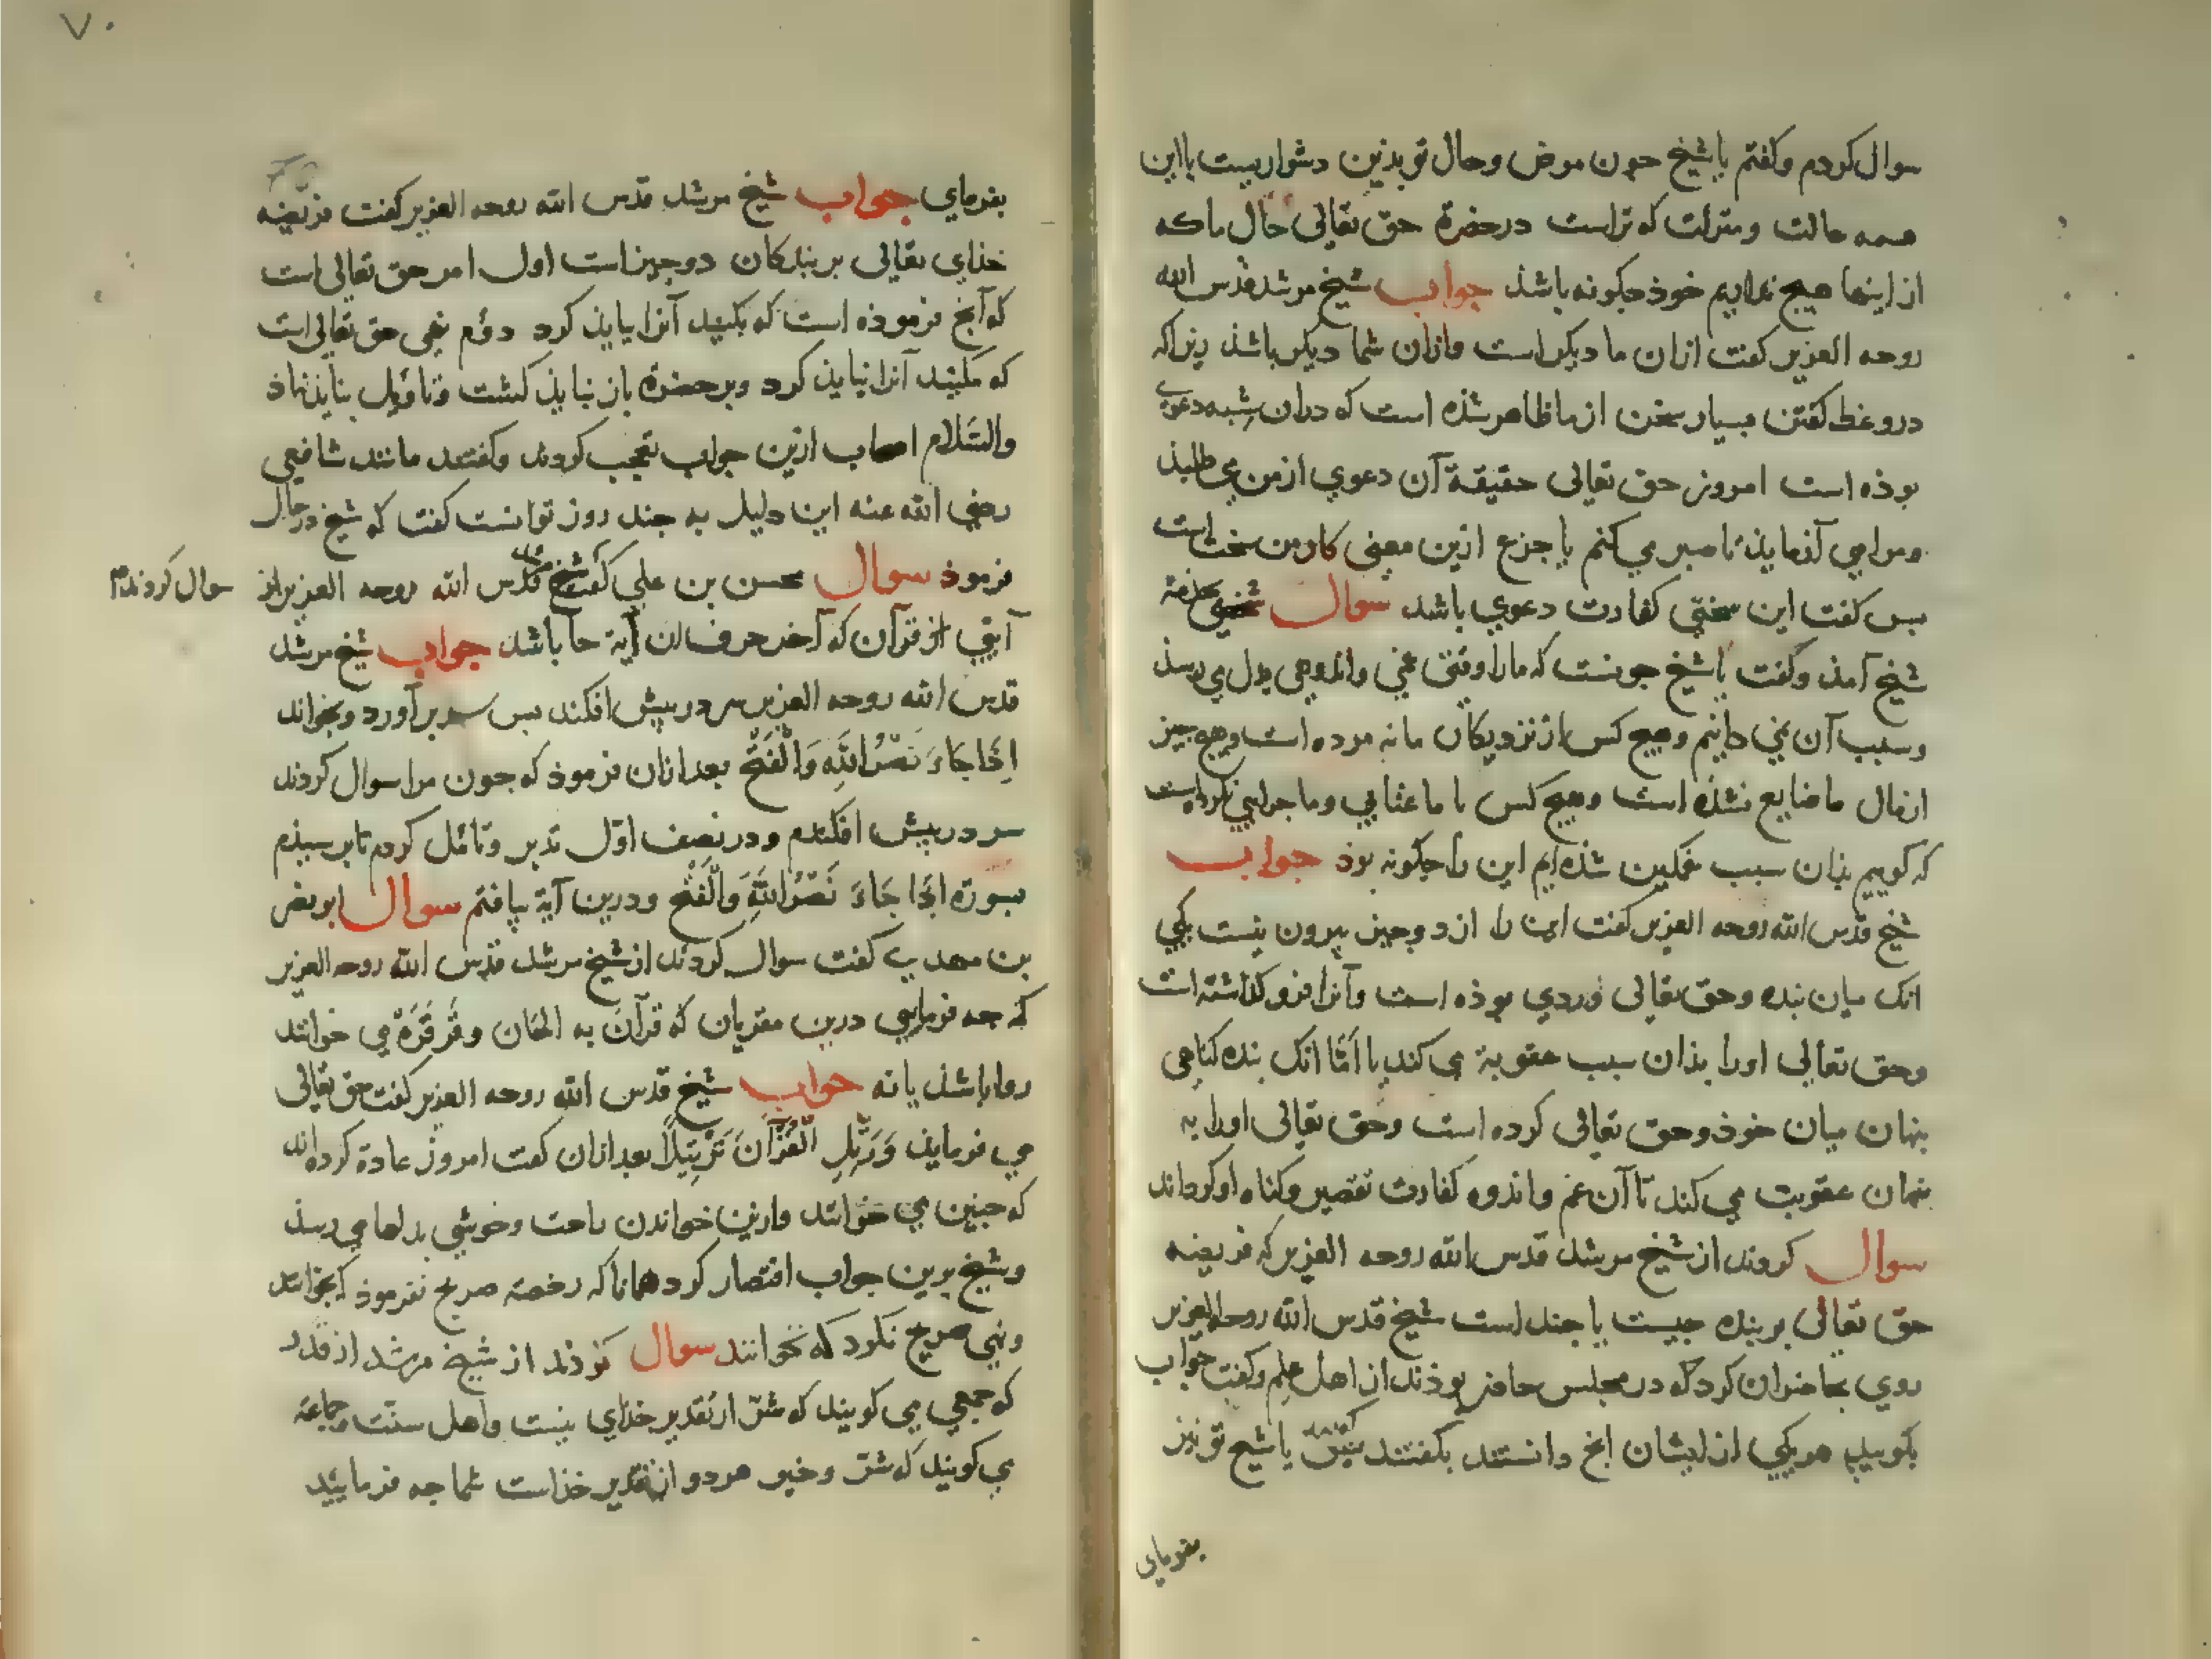 سوال کردم وکفتم یا شیخ جون مرض وحال تو بذین دشواریست با این
همه حالت ومنزلت که تراست درحضرة حق تعالی حال ما که
از اینها هیج نداریم خوذ جکونه باشذ جواب شیخ مرشد قدس الله
روحه العزیر کفت ازان ما دیکر است وازان شما دیکر باشذ زیراکه
دروعظ کفتن بسیار سخن از ما ظاهر شذه است که دران شبه دعوی
بوذه است امروز حق تعالی حقیقة آن دعوی ازمن می طلبذ
ومرا می آزمایذ تا صبر می کنم یا جزع ازین معنی کار من سخت است
بس کفت این سختی کفارت دعوی باشد سوال شخصی بخدمة
شیخ آمذ وکفت یا شیخ جونست که مارا وقتی غمی واندوهی بدل می رسذ
وسبب آن نمی دانیم وهیج کس از نزدیکان ما نه مرده است وهیج جیز
ازمال ما ضایع نشذه است وهیج کس با ما عتابی وماجرایی نکرده است
که کوییم بذان سبب غمکین شذه ایم این را جکونه بوذ جواب
شیخ قدس الله روحه العزیر کفت این را از دو جیز بیرون نیست یکی
انک میان بنده وحق تعالی وردی بوذه است وآنرا فرو کذاشته است
وحق تعالی اورا بذان سبب عقوبة می کند یا اما انک بنده کناهی
بنهان میان خوذ وحق تعالی کرده است وحق تعالی اورا به
بنهان عقوبت می کند تا آن غم واندوه کفارت تقصیر وکناه او کرداند
سوال کردند از شیخ مرشد قدس الله روحه العزیر که فریضه
حق تعالی بر بنده جیست یا جند است شیخ قدس الله روحه العزیر
روی بحاضران کرد که در مجلس حاضر بوذند از اهل علم وکفت جواب
بکویید هر یکی از ایشان انج دانستند بکفتند کفتند یا شیخ تو نیز
بفرمای
۷۰
بفرمای جواب شیخ مرشد قدس الله روحه العزیر کفت فریضه
خذای تعالی بر بندکان دو جیز است اول امر حق تعالی است
که آنج فرموذه است که بکنید آنرا ببایذ کرد دوم نهی حق تعالی است
که مکنید آنرا نبایذ کرد وبر حضرة باز نبایذ کشت وتاویل نبایذ نهاذ
والسلام اصحاب ازین جواب تعجب کردند وکفتند مانند شافعی
رضی الله عنه این دلیل به جند روز توانست کفت که شیخ درحال
فرموذ سوال محسن بن علی کفت شیخ قدس الله روحه العزیر از
سوال کردند
آیتی از قرآن که آخر حرف ان آیة حا باشد جواب شیخ مرشد
قدس الله روحه العزیر سر در بیش افکند بس سر بر آورد وبخواند
اِذَا جَاءَ نَصْرُ اللّٰهِ وَالْفَتْحُ بعد ازان فرموذ که جون مرا سوال کردند
سر در بیش افکندم ودر نصف اول تدبر وتامل کردم تا برسیذم
بسورة اِذَا جَاءَ نَصْرُ اللّٰهِ وَالْفَتْحُ ودرین آیة بیافتم سوال ابو نصر
بن مهدی کفت سوال کردند از شیخ مرشد قدس الله روحه العزیر
که جه فرمایی درین مقریان که قرآن به الحان وقرقرة می خوانند
روا باشذ یا نه جواب شیخ قدس الله روحه العزیر کفت حق تعالی
می فرمایذ وَرَتِّلِ الْقُرْآنَ تَرْتِیلًا بعد ازان کفت امروز عادة کرده اند
که جنین می خوانند وازین خواندن راحت وخوشی بدلها می رسذ
وشیخ برین جواب اقتصار کرد همانا که رخصة صریح نفرموذ که بخوانند
ونهی صریح نکرد که نخوانند سوال کردند از شیخ مرشد از قدر
که جمعی می کویند که شر از تقدیر خذای نیست واهل سنت وجماعة
می کویند که شر وخیر هر دو از تقدیر خذاست شما جه فرمایید